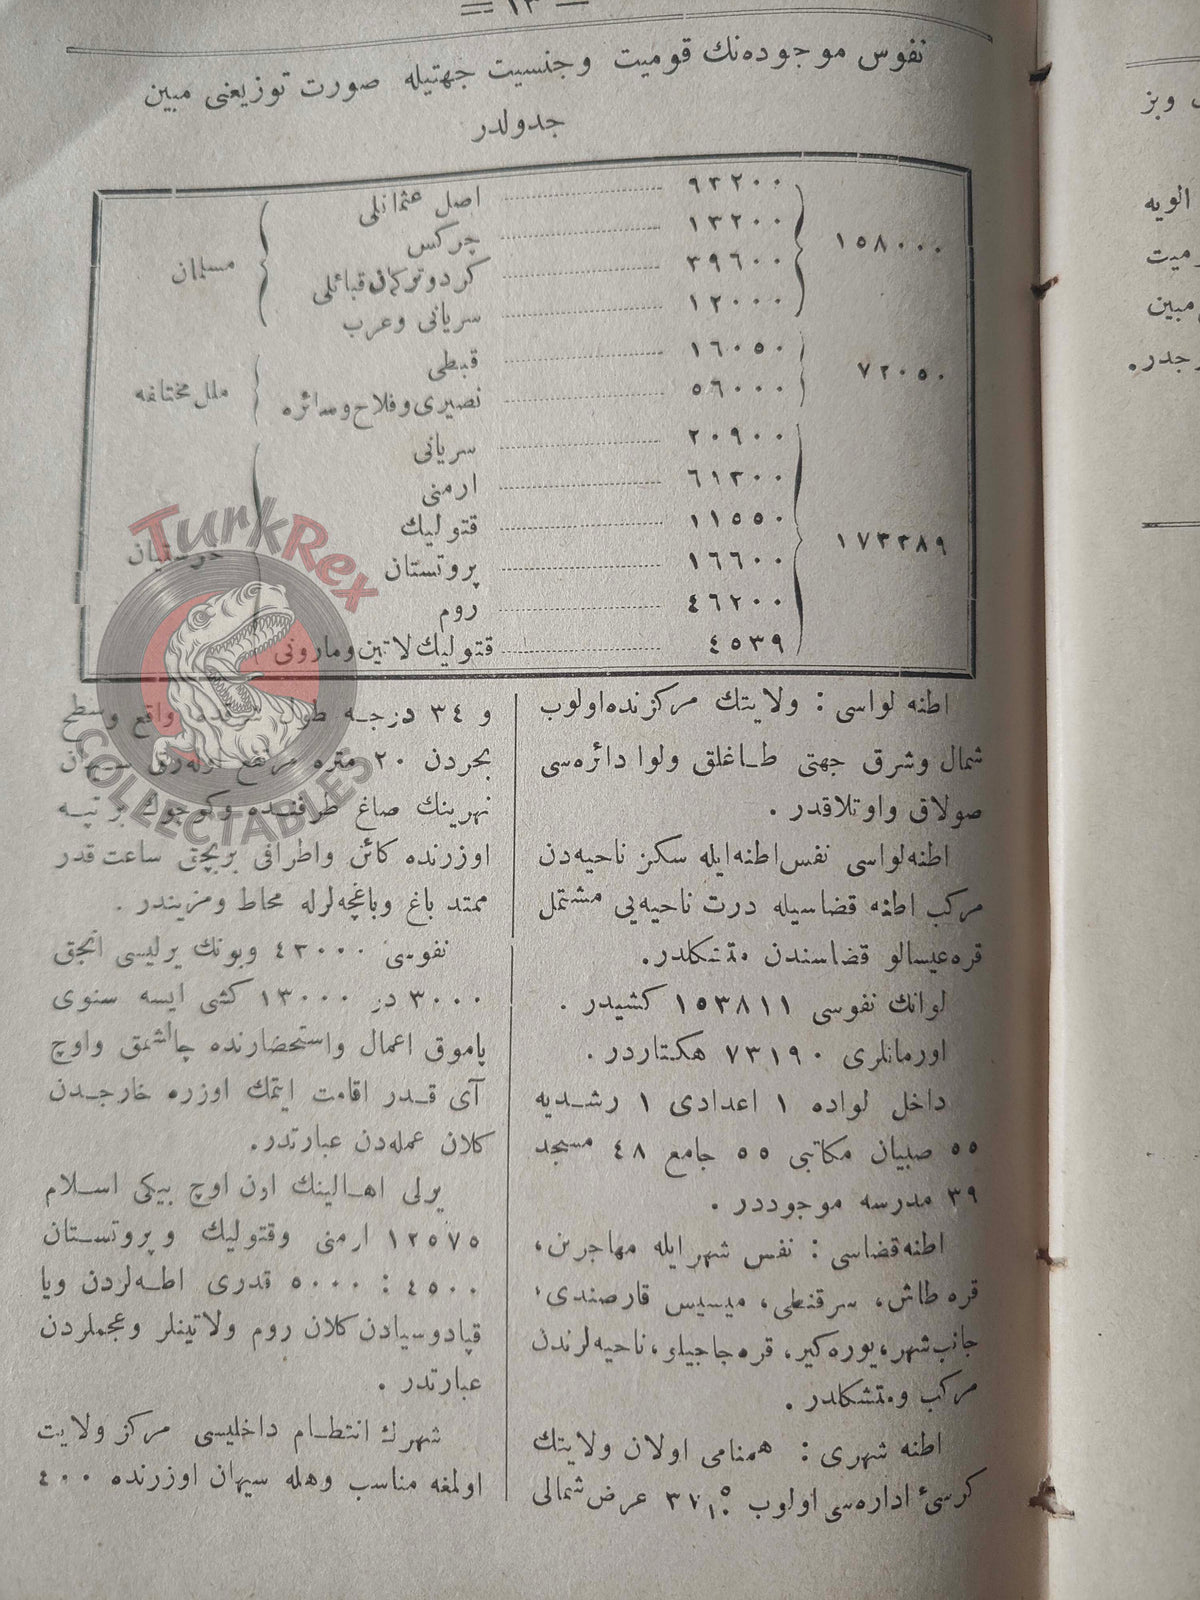 — ١٣ —
نفوس موجوده‌نك قوميت وجنسيت جهتيله صورت توزيعنى مبين
جدولدر
١٥٨٠٠٠
٩٣٢٠٠ اصل عثمانلى
١٣٢٠٠ چركس
٣٩٦٠٠ كرد وتركمان قبائلى
١٢٠٠٠ سريانى وعرب
مسلمان
٧٢٠٥٠
١٦٠٥٠ قبطى
٥٦٠٠٠ نصيرى وفلاح وسائره
ملل مختلفه
١٧٣٣٨٩
٢٠٩٠٠ سريانى
٦١٣٠٠ ارمنى
١١٥٥٠ قتوليك
١٦٦٠٠ پروتستان
٤٦٢٠٠ روم
٤٥٣٩ قتوليك لاتين ومارونى
خرستيان
اطنه لواسى : ولايتك مركزنده اولوب
شمال وشرق جهتى طاغلق ولوا دائره‌سى
صولاق واوتلاقدر .
اطنه لواسى نفس اطنه ايله سكز ناحيه‌دن
مركب اطنه قضاسيله درت ناحيه‌يى مشتمل
قره عيسالو قضاسندن متشكلدر.
لوانك نفوسى ١٥٣٨١١ كشيدر .
اورمانلرى ٧٣١٩٠ هكتاردر .
داخل لواده ١ اعدادى ١ رشديه
٥٥ صبيان مكاتبى ٥٥ جامع ٤٨ مسجد
٣٩ مدرسه موجوددر .
اطنه قضاسى : نفس شهر ايله مهاجرين،
قره طاش، سرقنطى، ميسيس قارصندى،
جانب شهر، يوره‌كير، قره حاجيلو، ناحيه‌لرندن
مركب ومتشكلدر .
اطنه شهرى : همنامى اولان ولايتك
كرسئ اداره‌سى اولوب ٣٧ عرض شمالى
و ٣٤ درجه طول واقع وسطح
بحردن ٢٠ متره مرتفع
نهرينك صاغ طرفنده وكوچوك بر تپه
اوزرنده كائن واطرافى بربچق ساعت قدر
ممتد باغ وباغچه‌لرله محاط ومزيندر .
نفوسى ٤٣٠٠٠ وبونك يرليسى انجق
٣٠٠٠٠ در ١٣٠٠٠ كشى ايسه سنوى
پاموق اعمال واستحضارنده چالشمق واوچ
آى قدر اقامت ايتمك اوزره خارجدن
كلان عمله‌دن عبارتدر.
يرلى اهالينك اون اوچ بيكى اسلام
١٢٥٧٥ ارمنى وقتوليك وپروتستان
٤٥٠٠ : ٥٠٠٠ قدرى اطه‌لردن ويا
قپادوسيادن كلان روم ولاتينلر وعجملردن
عبارتدر .
شهرك انتظام داخليسى مركز ولايت
اولمغه مناسب وهله سيهان اوزرنده ٤٠٠
وبز
الويه
مبين
TurkRex
COLLECTABLES